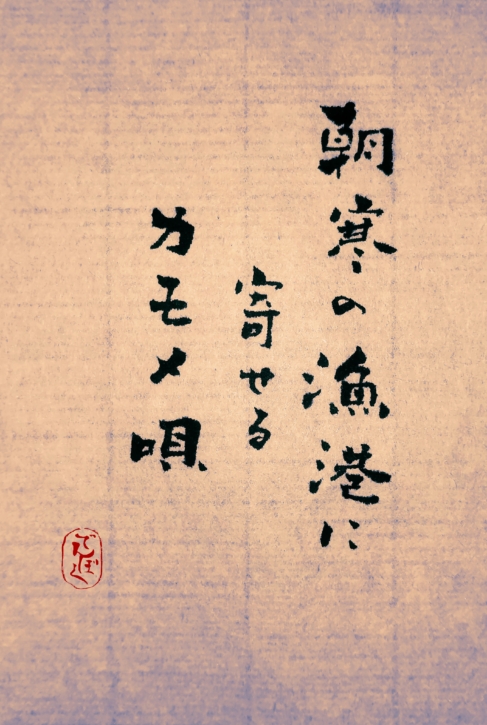 朝寒の漁港に
寄せる
カモメ唄